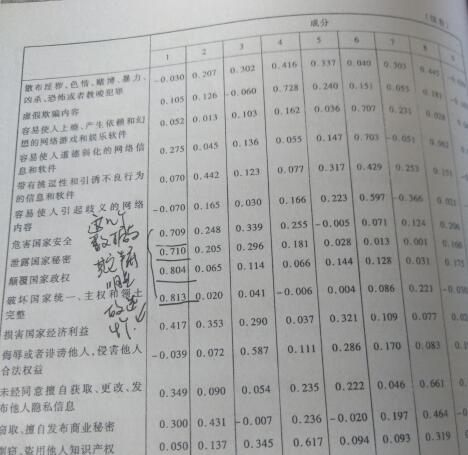 （续表）
成分
1 2 3 4 5 6 7 8 9
散布淫秽、色情、赌博、暴力、 -0.030 0.207 0.302 0.416 0.337 0.040 0.303 0.445
凶杀、恐怖或者教唆犯罪
虚假欺骗内容 0.105 0.126 -0.060 0.728 0.240 0.151 0.055 0.181
容易使人上瘾、产生依赖和幻 0.052 0.013 0.103 0.162 0.036 0.707 0.231 0.028
想的网络游戏和娱乐软件
容易使人道德弱化的网络信 0.275 0.045 0.136 0.055 0.147 0.703 -0.051
息和软件
带有挑逗性和引诱不良行为 0.070 0.442 0.123 0.077 0.317 0.429 0.253
的信息和软件
容易使人引起歧义的网络 -0.070 0.165 0.030 0.166 0.223 0.597 -0.366
内容
危害国家安全 0.709 0.248 0.339 0.255 -0.005 0.071 0.124 0.206
泄露国家秘密 0.710 0.205 0.296 0.181 0.028 0.013 0.001 0.160
颠覆国家政权 0.804 0.065 0.114 0.066 0.144 0.128 0.031 0.175
破坏国家统一、主权和领土 0.813 0.020 0.041 -0.006 0.004 0.086 0.221
完整
损害国家经济利益 0.417 0.353 0.290 0.037 0.321 0.109 0.077
侮辱或者诽谤他人，侵害他人 -0.039 0.072 0.587 0.111 0.286 0.170 0.083
合法权益
未经同意擅自获取、更改、发 0.349 0.090 0.054 0.235 0.222 0.046 0.661
布他人隐私信息
窃取、擅自发布商业秘密 0.300 0.431 -0.007 0.236 -0.020 0.197 0.464
剽窃、盗用他人知识产权 0.050 0.137 0.345 0.617 0.094 0.093 0.319